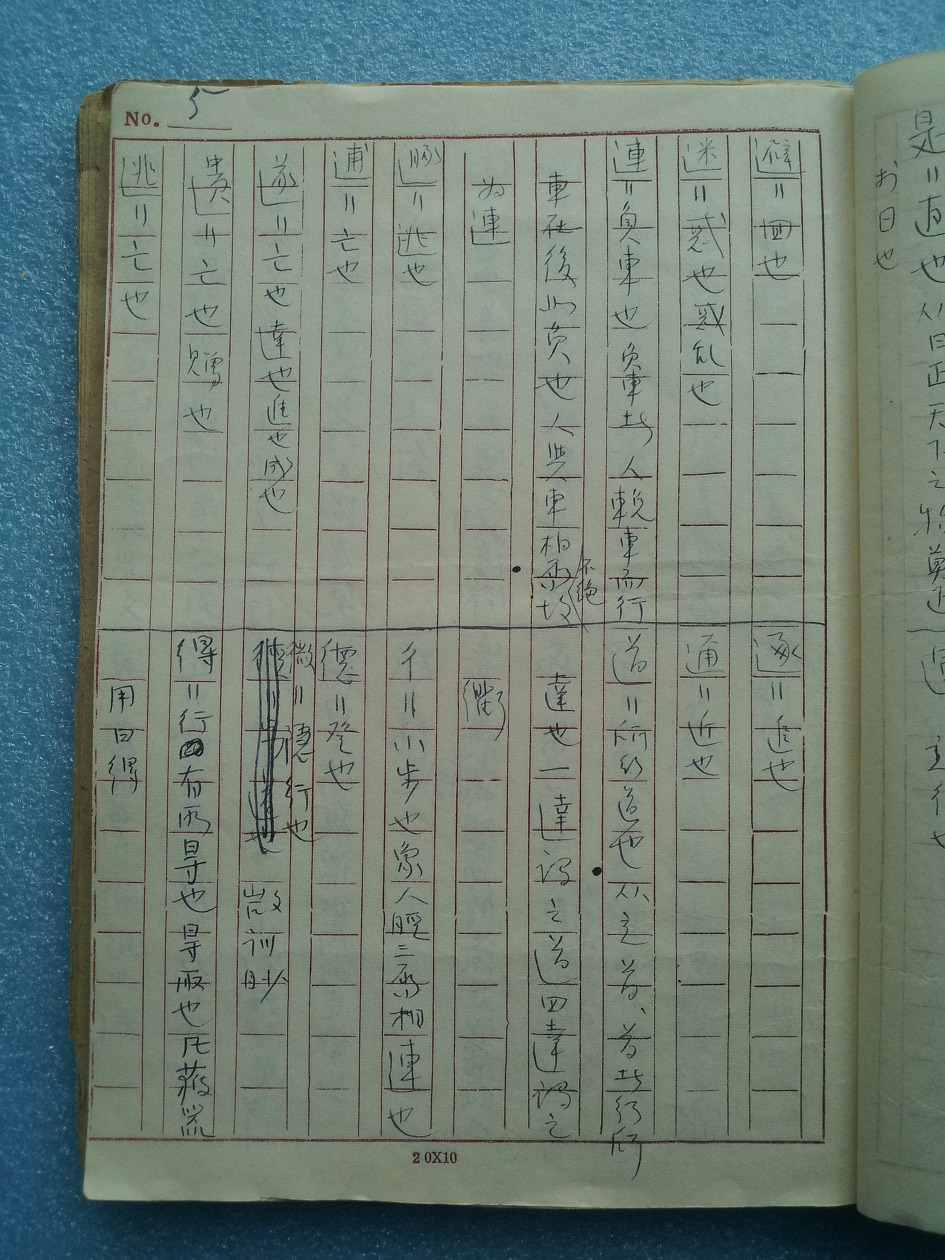 No. 5
避＝回也
迷＝惑也惑乱也
連＝負車也負車者人輓車而行
車在後如負也人與車相屬
不絕
為連
遯＝逃也
逋＝亡也
遂＝亡也達也進也成也
遺＝亡也贈也
逃＝亡也
逐＝追也
通＝近也
道＝所行道也从辵首、首者行所
達也一達謂之道四達謂之
衢
彳＝小步也象人脛三屬相連也
德＝登也
微＝隱行也
𢼸訓眇
得＝行有所㝵也㝵取也凡獲器
用曰得
20X10
是＝直也从日正天下之物莫正
於日也